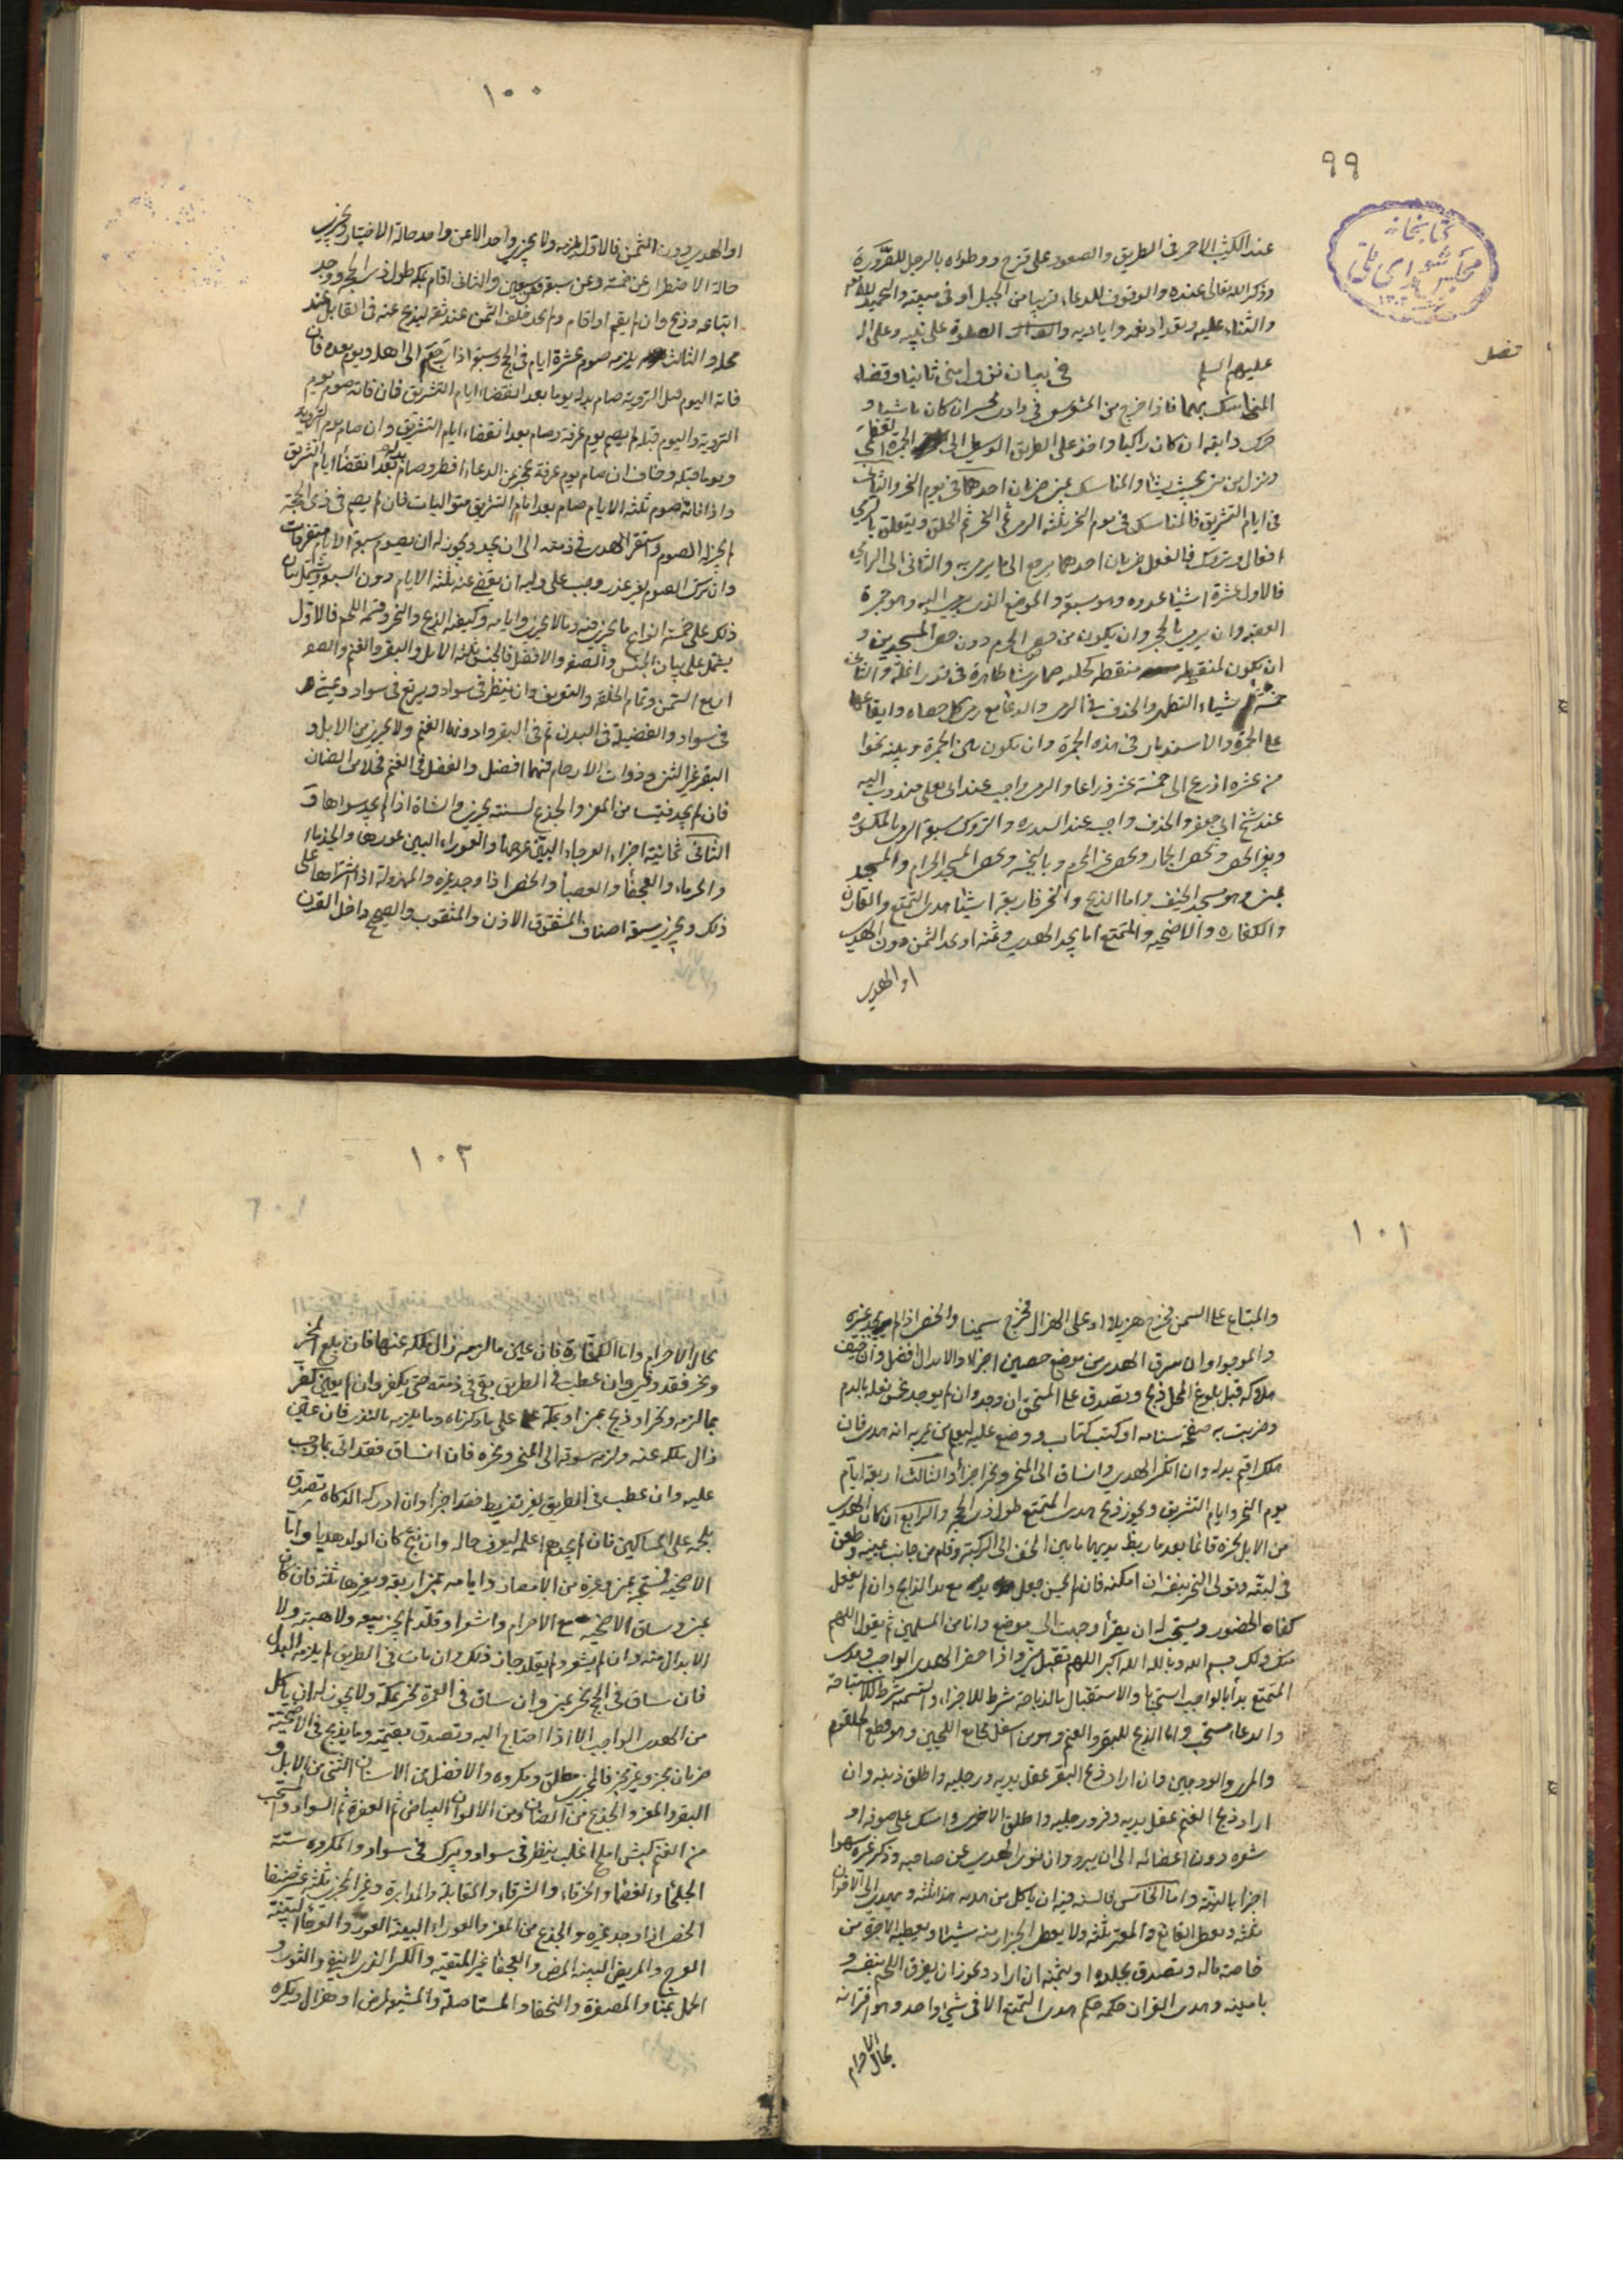 ٩٩
كتابخانه
مجلس شورای ملی
فصل
عند الكثيب الاحمر فى الطريق والصعود على قزح ووطؤه بالرجل للصرورة
وذكر الله تعالى عنده والوقوف للدعاء قريبا من الجبل او فى سبحته والتحميد لله تعالى
والثناء عليه وتعداد نعمه واياديه والصلوة على نبيه وعلى اله
عليهم السلم فى بيان نزول منى ثانيا وقضاء
المناسك بها فاذا خرج من المشعر سعى فى وادى محسر ان كان ماشيا و
حرك دابته ان كان راكبا واخذ على الطريق الوسطى الى الجمرة
ونزل من منى بحيث يشاء والمناسك بمنى ضربان احدهما فى يوم النحر والثانى
فى ايام التشريق فالمناسك فى يوم النحر ثلثة الرمى ثم النحر ثم الحلق ويتعلق بالرمى
افعال وتروك فالفعل ضربان احدهما يرجع الى ما يرمى به والثانى الى الرامى
فالاول عشرة اشياء عدده وهو سبعة والموضع الذى يرمى اليه وهو جمرة
العقبة وان يرمى بالحجر وان يكون من حصى الحرم دون حصى المسجدين و
ان يكون ملتقطة منقطة كحلية برشا طاهرة فى قدر انملة والثانى
خمسة اشياء التطهر والخذف فى الرمى والدعاء مع رمى كل حصاة وايقاعها
على الجمرة والاستدبار فى هذه الجمرة وان يكون بين الجمرة وبينه نحوا
من عشرة اذرع الى خمسة عشر ذراعا والرمى واجب عند ابى يعلى مندوب اليه
عند شيخ ابى جعفر والخذف واجب عند السيد ره والتروك سبعة الرمى بالمكسورة
وبغير الحصى وبحصى الجمار وبحصى غير الحرم وبالنجسة وبحصى المسجد الحرام والمسجد
بمنى وهو مسجد الخيف واما الذبح والنحر فاربعة اشياء هدى التمتع والقارن
والكفارة والاضحية والمتمتع اما يجد الهدى وثمنه او يجد الثمن دون الهدى
او الهدى
١٠٠
او الهدى دون الثمن فالاول يلزمه ولا يجزى واحد الا عن واحد حالة الاختيار ويجزى
حالة الاضطرار عن خمسة وعن سبعة وعن سبعين والثانى ان اقام بمكة طول ذى الحجة ووجد
ابتاعه وذبح وان لم يقم او اقام ولم يجد خلف الثمن عند ثقة ليذبح عنه فى القابل عند
محله والثالث يلزمه صوم عشرة ايام ثلثة فى الحج وسبعة اذا رجع الى اهله ويوم بعده فان
فاته اليوم قبل التروية صام بدله يوما بعد انقضاء ايام التشريق فان فاته صوم يوم
التروية واليوم قبله لم يصم يوم عرفة وصام بعد انقضاء ايام التشريق وان صام يوم التروية
ويوما قبله وخاف ان صام يوم عرفة عجز عن الدعاء افطر وصام بدله بعد انقضاء ايام التشريق
واذا فاته صوم ثلثة الايام صام بعد ايام التشريق متواليات فان لم يصم فى ذى الحجة
لم يجزله الصوم واستقر الهدى فى ذمته الى ان يجد ويجوز له ان يصوم سبعة الايام متفرقات
وان ترك الصوم بغير عذر وجب على وليه ان يقضى عنه ثلثة الايام دون السبعة ويشتمل بيان
ذلك على خمسة انواع ما يجزى فيه وما لا يجزى وايامه وكيفية الذبح والنحر وقسمة اللحم فالاول
يشتمل على بيان الجنس والصفة والافضل فالجنس ثلثة الابل والبقر والغنم والصفة
اربع السمن وتمام الخلقة والتعريف وان ينظر فى سواد ويرتع فى سواد ويمشى
فى سواد والفضيلة فى البدن ثم فى البقر وادونها الغنم ولا يجزى من الابل و
البقر غير الثنى وذوات الارحام فيهما افضل والفضل فى الغنم فحلا من الضان
فان لم يجد فتيسا من المعز والجذع لسنة يجزى والشاة اذا لم يجد سواها و
الثانى ثمانية اجزاء العرجاء البين عرجها والعوراء البين عورها والجذماء
والجرباء والعجفاء والعضباء والخصى اذا وجد غيره والمهزولة اذا اشتراها على
ذلك ويجزى سبعة اصناف المشقوق الاذن والمثقوب والصحيح داخل القرن
١٠١
والمبتاع على السمن فخرج هزيلا او على الهزال فخرج سمينا والخصى اذا لم يجد غيره
والموجوا وان سرق الهدى من موضع حصين اجزأ والابدال افضل وان خيف
هلاكه قبل بلوغ المحل ذبح وتصدق على المستحق ان وجد وان لم يوجد غمس نعله بالدم
وضربت به صفحة سنامه او كتب كتاب ووضع عليه ليعلم من مر به انه هدى فان
هلك اقيم بدله وان انكسر الهدى وانساق الى المنحر ونحر اجزأ والثالث اربعة ايام
يوم النحر وايام التشريق ويجوز ذبح هدى المتمتع طول ذى الحجة والرابع ان كان الهدى
من الابل نحره قائما بعد ما ربط يديها ما بين الخف الى الركبة وقام من جانب يمينه وطعن
فى لبته وتولى النحر بنفسه ان امكنه فان لم يحسن جعل يده مع يد الذابح وان لم يفعل
كفاه الحضور ويستحب له ان يقرأ وجهت الى موضع وانا من المسلمين ثم يقول اللهم
منك ولك بسم الله وبالله الله اكبر اللهم تقبل منى واذا حضر الهدى الواجب وهدى
المتمتع بدأ بالواجب استحبابا والاستقبال بالذباحة شرط للاجزاء والتسمية شرط للاستباحة
والدعاء مستحب واما الذبح للبقر والغنم وهو من اسفل مجامع اللحيين وهو قطع الحلقوم
والمرى والودجين وان اراد ذبح البقر عقل يديه ورجليه واطلق ذنبه وان
اراد ذبح الغنم عقل يديه وفرد رجليه واطلق الاخرى وامسك على صوفه او
شعره دون اعضائه الى ان يبرد وان نوى الهدى عن صاحبه وذكر غيره سهوا
اجزأ بالنية واما الخامس فالسنة فيه ان ياكل من هديه ثلثه ويهدى الى الاخوان
ثلثه ويعطى القانع والمعتر ثلثه ولا يعطى الجزار منه شيئا ويعطيه الاجرة من
خاصة ماله وتصدق بجلده او بثمنه ان اراد ويجوز ان يفرق اللحم بنفسه و
بامينه وهدى القران حكمه حكم هدى التمتع الا فى شى واحد وهو اقترانه
بحال الاحرام
١٠٢
بحال الاحرام واما الكفارة فان عين ما لزمه زال ملكه عنها فان بلغ المنحر
ونحر فقد وفى وان عطب فى الطريق بقى فى ذمته حتى يكفر وان لم يعين كفر
بما لزمه ونحر او ذبح بمنى او بمكة على ما ذكرناه وما يلزمه بالنذر فان عين
زال ملكه عنه ولزمه سوقه الى المنحر ونحره فان انساق فقد اتى بما وجب
عليه وان عطب فى الطريق بغير تفريط فقد اجزأ وان ادركه الذكاة تصدق
بلحمه على المساكين فان لم يجدهم اعلمه ليعرف حاله وان نتج كان الولد هديا واما
الاضحية فستحبة بمنى وغيره من الامصار وايامه بمنى اربعة وبغيرها ثلثة فان كان
بمنى وساق الاضحية مع الاحرام واشعر او قلد لم يجز بيعه ولا هبته ولا
الابدال منه وان لم يشعر ولم يقلد جاز ذلك وان مات فى الطريق لم يلزمه البدل
فان ساق فى الحج نحر بمنى وان ساق فى العمرة نحر بمكة ولا يجوز له ان ياكل
من الهدى الواجب الا اذا احتاج اليه وتصدق بقيمته وما يذبح فى الاضحية
ضربان يجزى وغير يجز فالمجزى مطلق ومكروه والافضل من الاسنان الثنى من الابل و
البقر والمعز والجذع من الضان ومن الالوان البياض ثم العفرة ثم السواد ويستحب
من الغنم كبش املح اغلب ينظر فى سواد ويبرك فى سواد والمكروه ستة
الجلحاء والغضباء والخرقاء والشرقاء والمقابلة والمدابرة وغير المجزى ثلثة عشر صنفا
الخصى اذا وجد غيره والجذع من المعز والعوراء البينة العور والعرجاء البينة
العرج والمريض البينة المرض والعجفاء غير المنقية والكسر الذى لا ينقى والثور و
الجمل بمنى والمصفرة والنحفا والمستاصلة والمشيعة لمرض او هزال ويكره